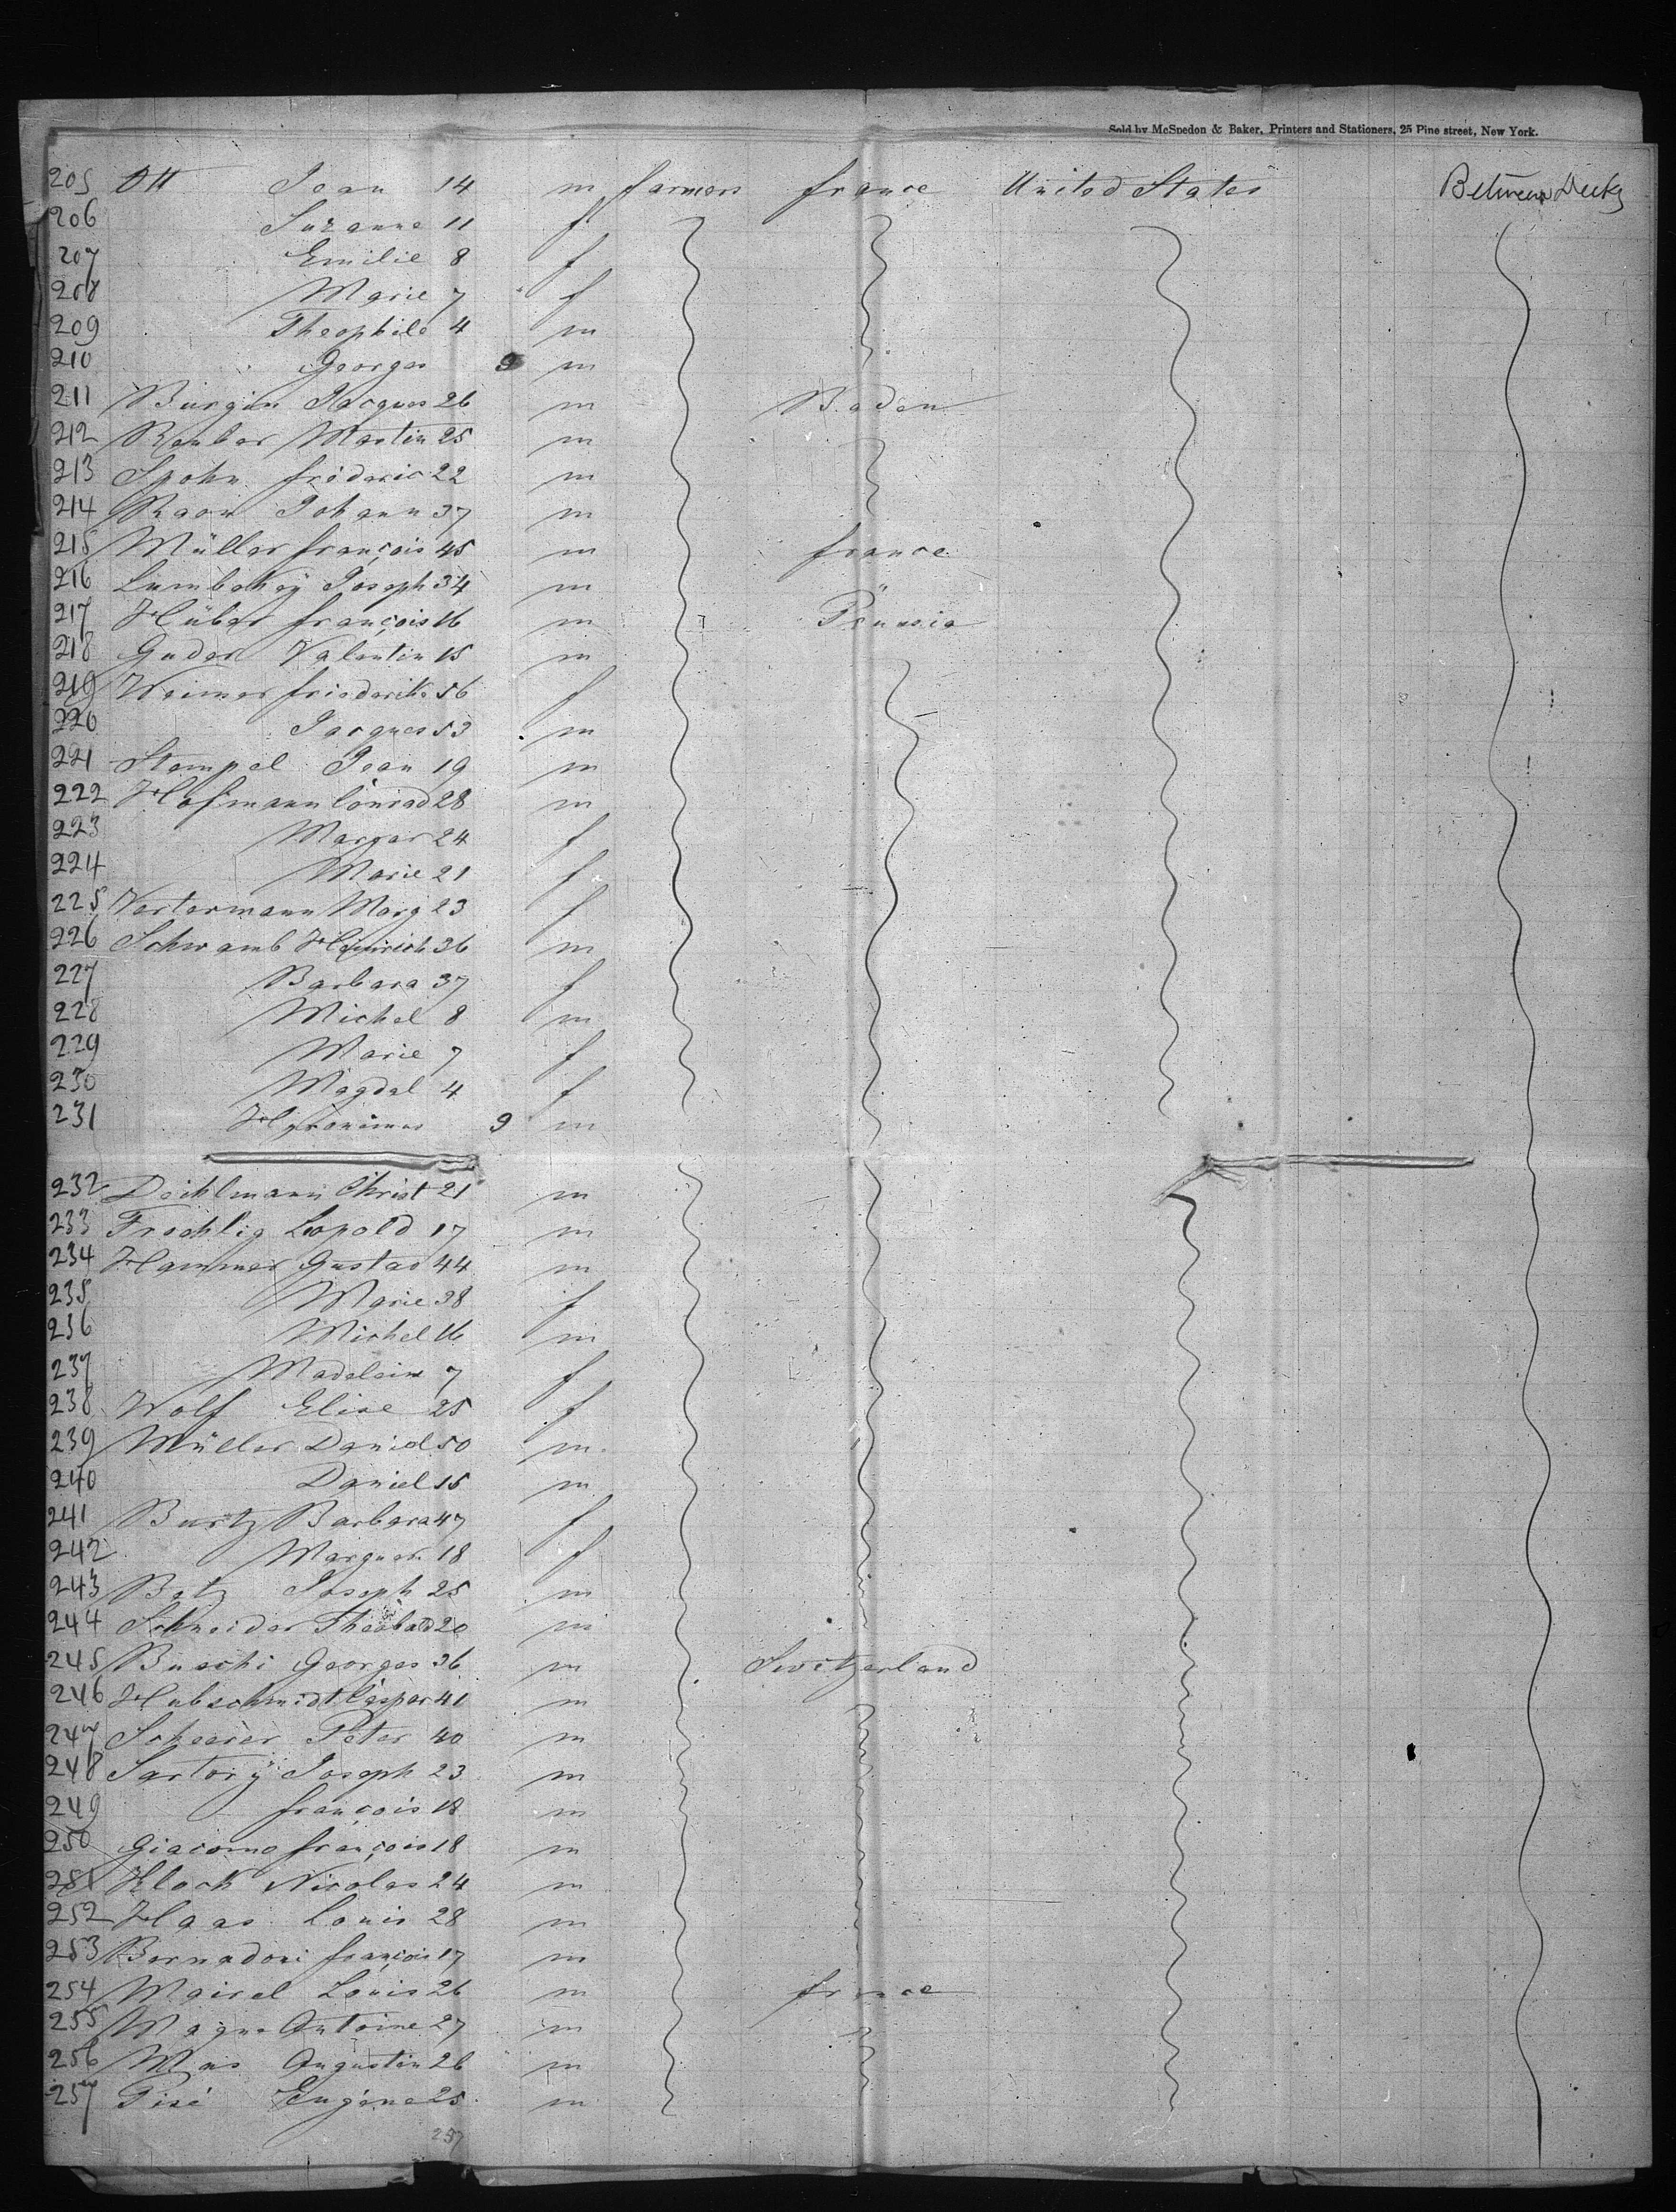 Sold by McSpedon & Baker, Printers and Stationers, 25 Pine street, New York.
205 Ott Jean 14 m farmers france United States Between Decks
206 Suzanne 11 f
207 Emilie 8 f
208 Marie 7 f
209 Theophile 4 m
210 Georges 9 m
211 Bürgin Jacques 26 m Baden
212 Martin 25 m
213 Spohn fréderic 22 m
214 Johann 37 m
215 Müller françois 45 m france
216 Joseph 34 m "
217 Hüber françois 16 m Prussia
218 Guder Valentin 15 m
219 Weimer friederike 56 f
220 Jacques 53 m
221 Stempel Jean 19 m
222 Hofmann Conrad 28 m
223 Margar 24 f
224 Marie 21 f
225 Vestermann Marg 23 f
226 Schwamb Heinrich 36 m
227 Barbara 37 f
228 Michel 8 m
229 Marie 7 f
230 Magdal 4 f
231 Hyronimus 9 m
232 Deihlmann Christ 21 m
233 Froehlig Leopold 17 m
234 Hammer Gustav 44 m
235 Marie 38 f
236 Michel 16 m
237 Madelein 7 f
238 Wolf Elise 25 f
239 Müller Daniel 50 m
240 Daniel 15 m
241 Burtz Barbara 47 f
242 Marguer 18 f
243 Betz Joseph 25 m
244 Schneider Theobald 20 m
245 Bueschi Georges 36 m Switzerland
246 Hubschmidt Caspar 41 m
247 Scheerer Peter 40 m
248 Sartorÿ Joseph 23 m
249 françois 18 m
250 Giacomo françois 18 m
251 Klock Nicolas 24 m
252 Haas Louis 28 m
253 Bernadoni françois 17 m
254 Mairel Louis 26 m france
255 Magne Antoine 27 m
256 Mas Augustin 26 m
257 Pisé Eugène 25 m
257